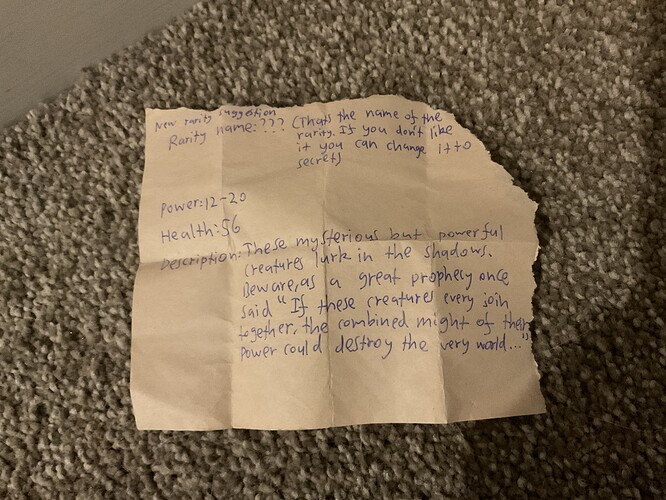 New rarity suggestion
Rarity name:??? (Thats the name of the
rarity. If you don't like
it you can change it to
secret)
Power:12-20
Health:56
Description: These mysterious but powerful
creatures lurk in the shadows.
Beware,as a great prophesy once
said "If these creatures every join
together, the combined might of their
power could destroy the very world..."